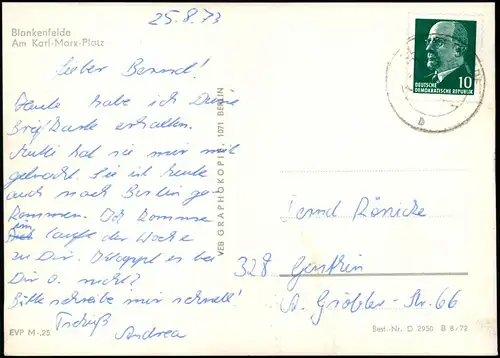 25.8.73
Blankenfelde
Am Karl-Marx-Platz
Lieber Bernd!
Heute habe ich Deine
Briefkarte erhalten.
Mutti hat sie mir mit
gebracht. Sie ist heute
auch nach Berlin ge
kommen. Ich komme
im
laufe der Woche
zu Dir. Klappt es bei
Dir o. nicht?
Bitte schreibe mir schnell!
Tschüß
Andrea
EVP M -.25
VEB GRAPHOKOPIE 1071 BERLIN
10
DEUTSCHE
DEMOKRATISCHE REPUBLIK
Bernd Rönicke
328 Genthin
A. Gröbler-Str. 66
Best.-Nr. D 2950 B 8/72